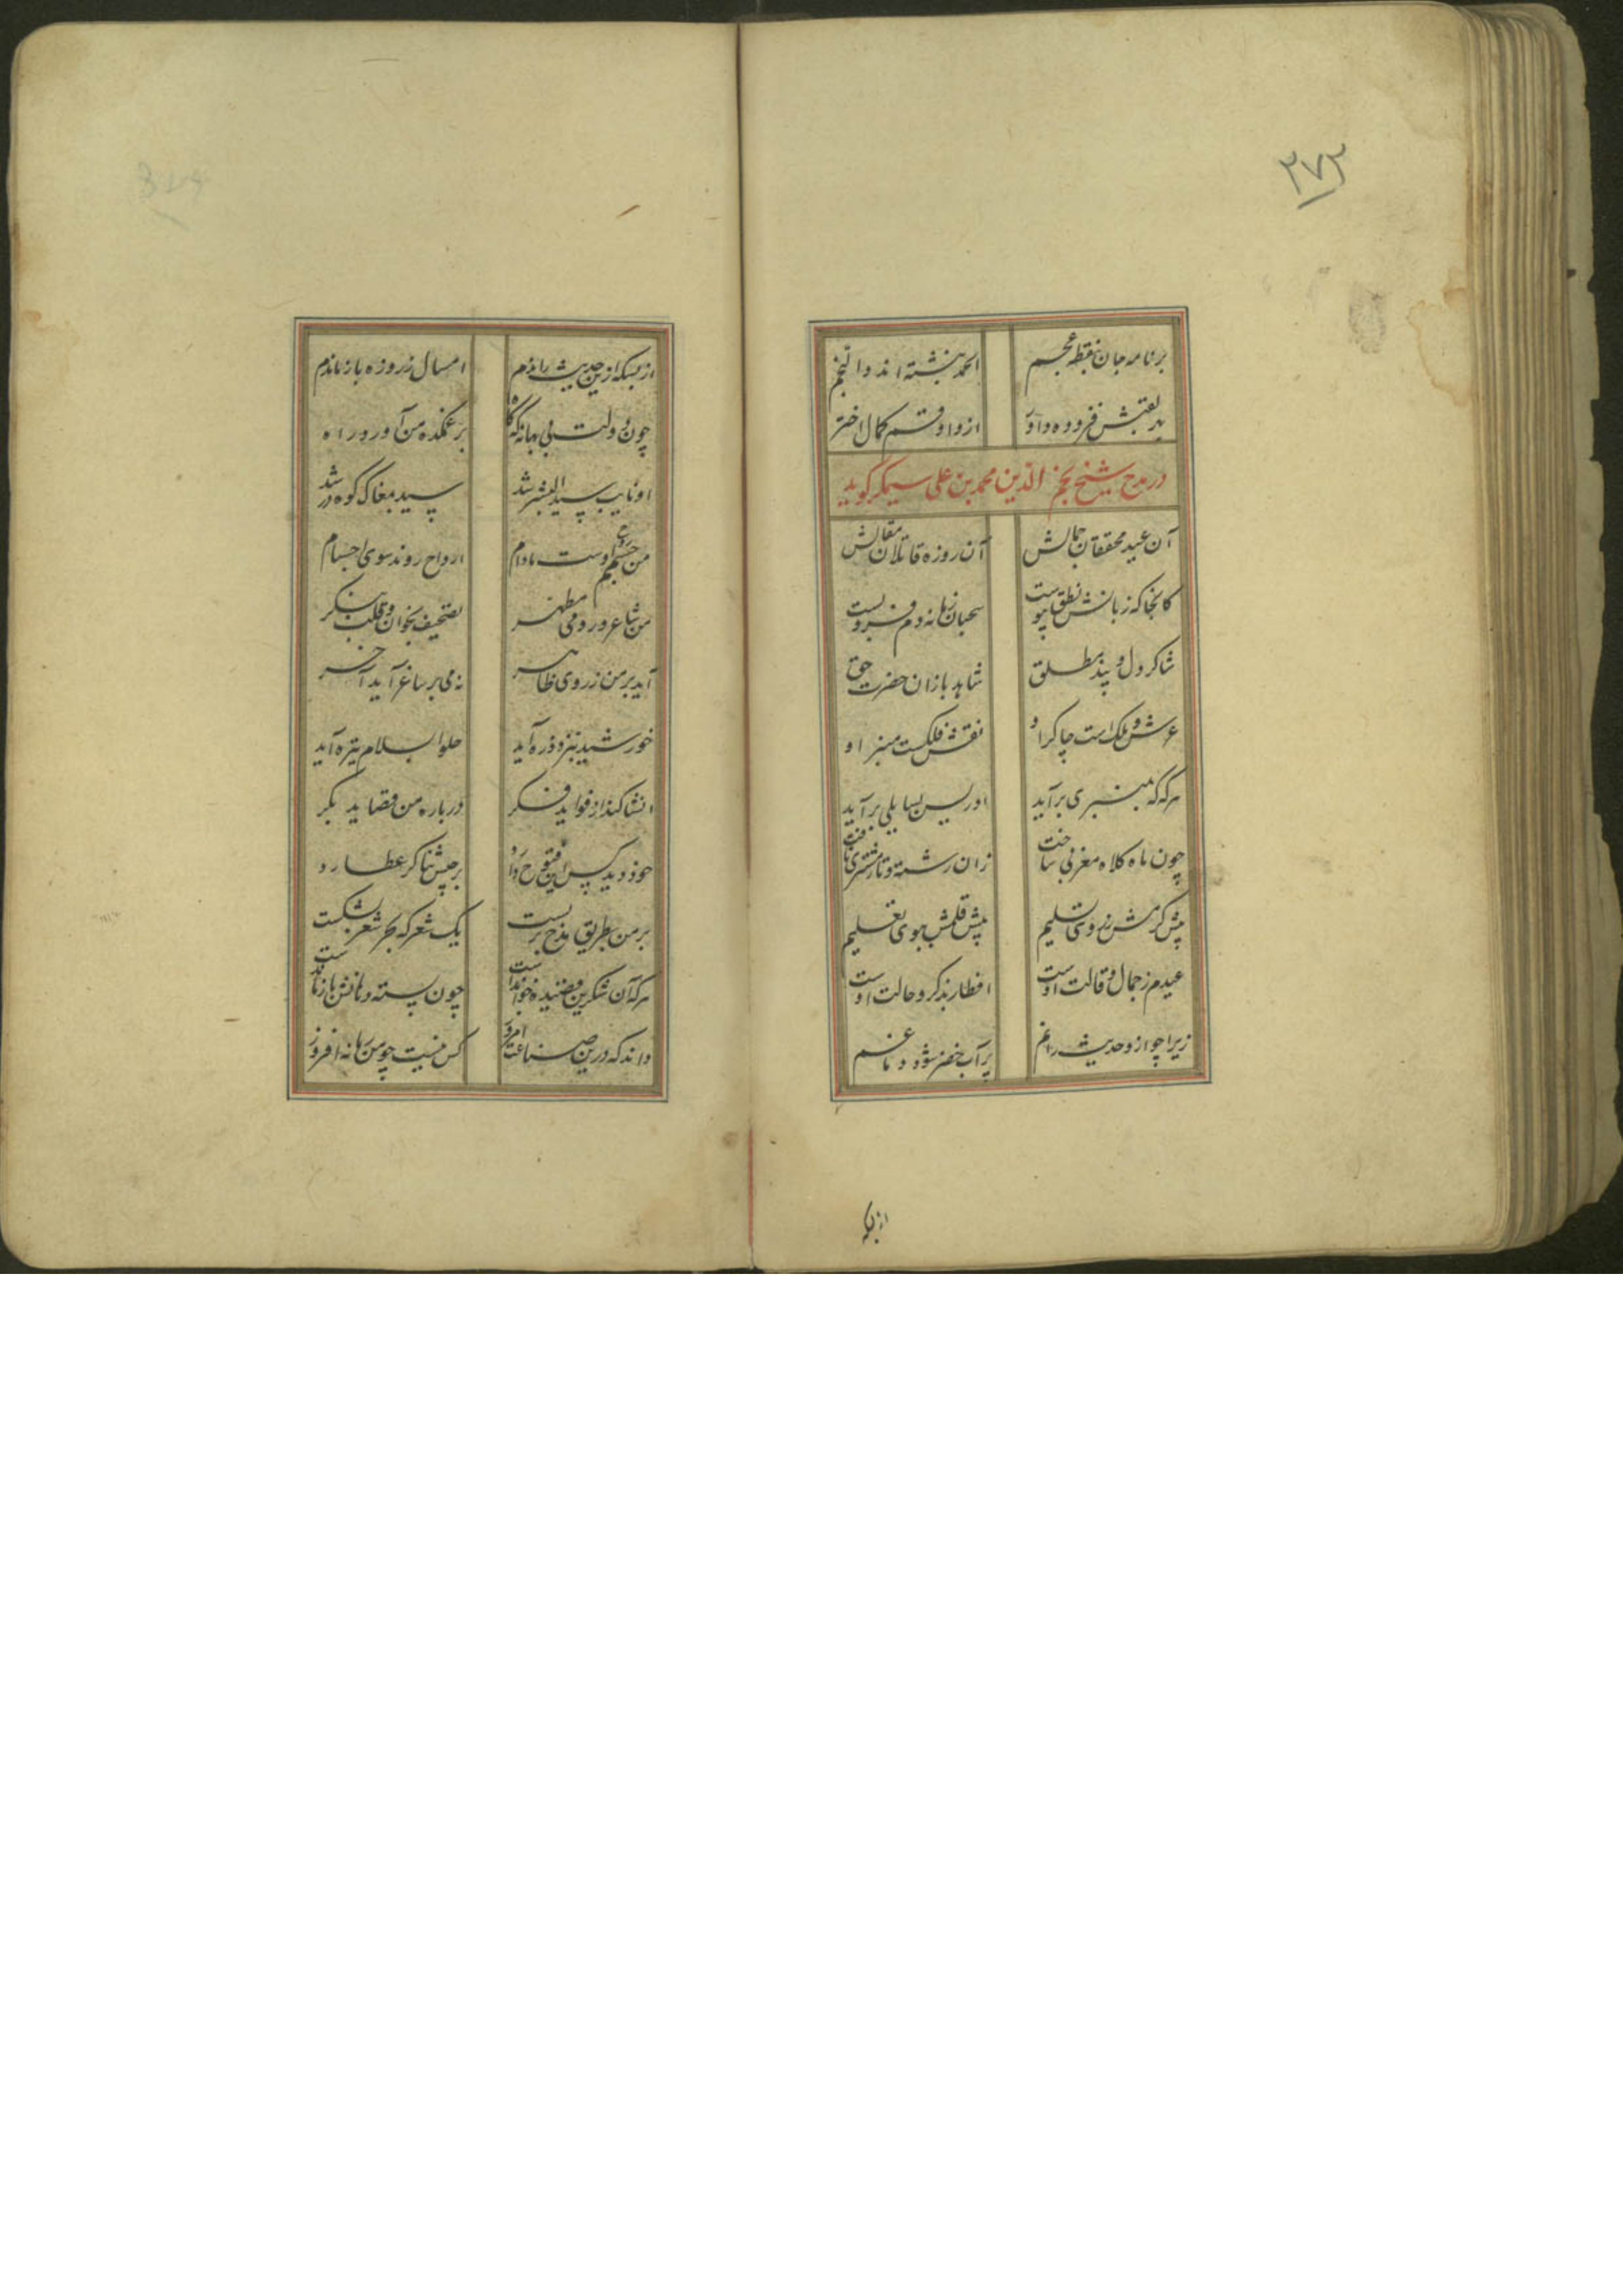 ۳۷۳
بر نامه جان نقطه عجم
الحمد نبشته اند و النجم
بد لقبش فزوده داور
از واو قسم کمال اختر
در مدح شیخ نجم الدین محمد بن علی سیمگر گوید
آن عید محققان جمالش
آن روزه قاتلان مقالش
کانجا که زبانش نطق پیوست
سحبان زمانه دم فرو بست
شاکر دل و پند مطلق
شاهد بازان حضرت حق
عرش و ملک است چاکر او
نقش فلکست منبر او
هر گه که به منبری برآید
ادریس بسایلی برآید
چون ماه کلاه مغربی ساخت
زان رشته دو تار مشتری یافت
پیش کرمش ز روی تسلیم
پیش قلمش بجوی تعلیم
عیدم ز جمال و قالت اوست
افطار بذکر و حالت اوست
زیرا چو ازو حدیث رانم
پر آب خضر شود دهانم
از بسکه
از بسکه ازین حدیث راندم
امسال ز روزه باز ماندم
چون دولت بی بهانه گه گاه
بر غمکده من آورد راه
او نایب سید البشر شد
سید بمغاک کوه در شد
من جسمم روح اوست مادام
ارواح روند سوی اجسام
من شاعر و رومی مطهر
تصحیف بخوان و قلب بنگر
آید بر من ز روی ظاهر
نه می بر ساغر آید آخر
خورشید بنزد ذره آید
حلوا بسلام تره آید
انشا کند از فواید فکر
درباره من قصاید بکر
خود دید کس این فتوح را
برجیس ثناگر عطارد
بر من بطریق مدح بربست
یک شعر که بحر شعر بشکست
هر کان شکرین قصیده خواندست
چون پسته دهانش باز ماندست
داند که درین صناعت امروز
کس نیست چو من زمانه افروز